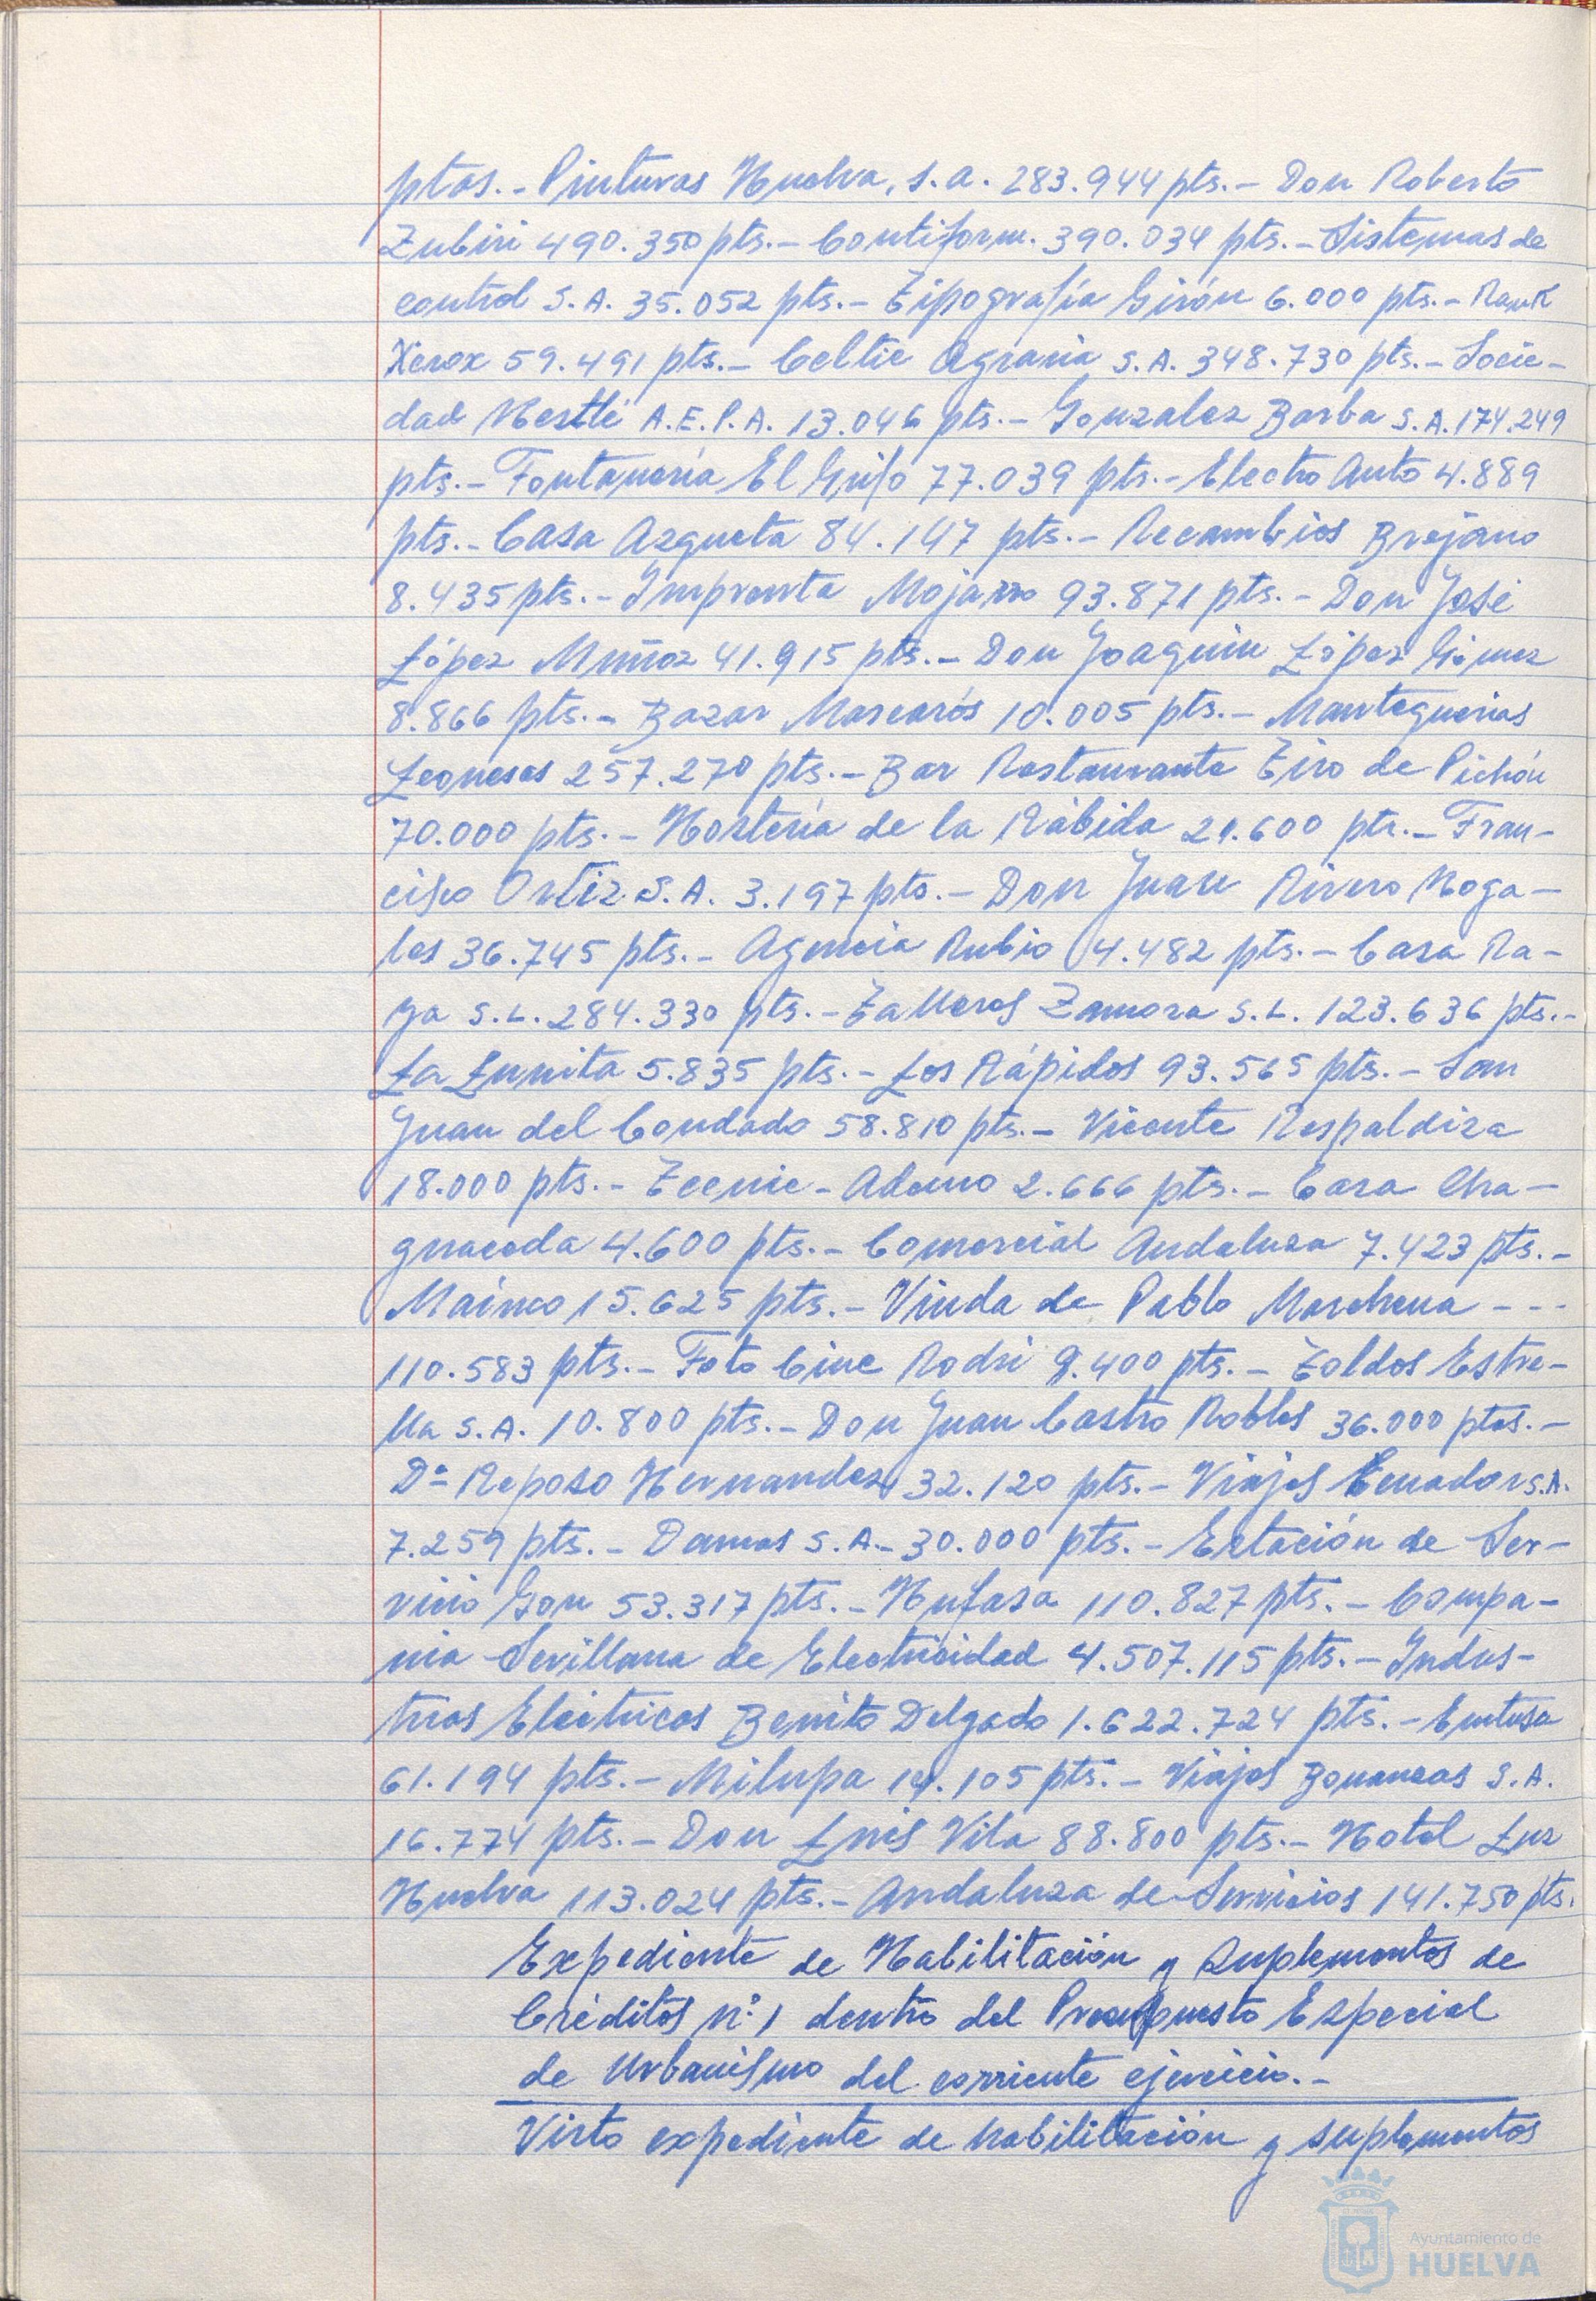 ptas.- Pinturas Huelva, S.A. 283.944 pts.- Don Roberto
Zubiri 490.350 pts.- Contiform. 390.034 pts.- Sistemas de
control S.A. 35.052 pts.- Tipografía Girón 6.000 pts.- Rank
Xerox 59.491 pts.- Celtic Agraria S.A. 348.730 pts.- Socie-
dad Nestlé A.E.P.A. 13.046 pts.- Gonzalez Barba S.A. 174.249
pts.- Fontanería El Grifo 77.039 pts.- Electro Auto 4.889
pts.- Casa Azqueta 84.147 pts.- Recambios Brejano
8.435 pts.- Imprenta Mojarro 93.871 pts.- Don José
López Muñoz 41.915 pts.- Don Joaquin López Gómez
8.866 pts.- Bazar Mascarós 10.005 pts.- Mantequerias
Leonesas 257.270 pts.- Bar Restaurante Tiro de Pichón
70.000 pts.- Hostería de la Rábida 21.600 pts.- Fran-
cisco Ortiz S.A. 3.197 pts.- Don Juan Rivero Noga-
les 36.745 pts.- Agencia Rubio 4.482 pts.- Casa Ra-
ya S.L. 284.330 pts.- Talleres Zamora S.L. 123.636 pts.-
La Lunita 5.835 pts.- Los Rápidos 93.565 pts.- San
Juan del Condado 58.810 pts.- Vicente Respaldiza
18.000 pts.- Tecnic-Ademo 2.666 pts.- Casa Cha-
guaceda 4.600 pts.- Comercial Andaluza 7.423 pts.-
15.625 pts.- Viuda de Pablo Marchena ---
110.583 pts.- Foto Cine Rodri 9.400 pts.- Toldos Estre-
lla S.A. 10.800 pts.- Don Juan Castro Robles 36.000 ptas.-
Dª Reposo Hernandez 32.120 pts.- Viajes Ecuador S.A.
7.259 pts.- Damas S.A.- 30.000 pts.- Estación de Ser-
vicio Gon 53.317 pts.- Hufasa 110.827 pts.- Compa-
nia Sevillana de Electricidad 4.507.115 pts.- Indus-
trias Eléctricas Benito Delgado 1.622.724 pts.- Entursa
61.194 pts.- Milupa 14.105 pts.- Viajes Bonanzas S.A.
16.774 pts.- Don Luis Vila 88.800 pts.- Hotel Luz
Huelva 113.024 pts.- Andaluza de Servicios 141.750 pts.
Expediente de Habilitación y Suplementos de
Créditos nº 1 dentro del Presupuesto Especial
de Urbanismo del corriente ejercicio.-
Visto expediente de habilitación y suplementos
Ayuntamiento de
HUELVA